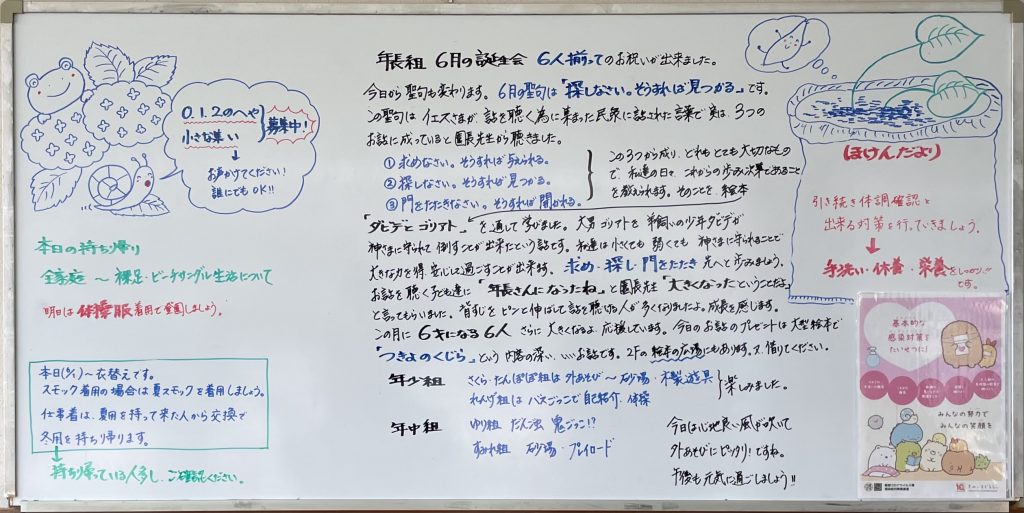 0.1.2のへや
小さな集い
募集中!
↓
お声かけてください!
誰にでもOK!!
本日の持ち帰り
全家庭 ~ 裸足・ビーチサンダル生活について
明日は体操服着用で登園しましょう。
本日(6/1)~衣替えです。
スモック着用の場合は夏スモックを着用しましょう。
仕事着は、夏用を持って来た人から交換で
冬用を持ち帰ります。
持ち帰っている人多し、ご確認ください。
年長組 6月の誕生会 6人揃ってのお祝いが出来ました。
今日から聖句も変わります。6月の聖句は「探しなさい。そうすれば見つかる。」です。
この聖句は イエスさまが、話を聴く為に集まった民衆に話された言葉で実は、3つの
お話に成っていると園長先生から聴きました。
① 求めなさい。そうすれば与えられる。
② 探しなさい。そうすれば見つかる。
③ 門をたたきなさい。そうすれば開かれる。
この3つから成り、どれもとても大切なもの
で、私達の日々、これからの歩み次第であること
を教えられます。そのことを、絵本
「ダビデとゴリアト」を通して学びました。大男ゴリアトを羊飼いの少年ダビデが
神さまに守られて倒すことが出来たという話です。私達は小さくても 弱くても 神さまに守られることで
大きな力を得 安心して過ごすことが出来ます。求め・探し・門をたたき 先へと歩みましょう。
お話を聴く子ども達に「年長さんになったね」と園長先生「大きくなったということだよ」
と言ってもらいました。背すじをピンと伸ばして話を聴ける人が多くなりましたよ。成長を感じます。
この月に 6才になる6人 さらに大きくなるよ、応援しています。今日のお話のプレゼントは大型絵本で
「つきよのくじら」という内容の深い、、、、、お話です。2Fの絵本の広場にもあります。又、借りてください。
年少組 さくら・たんぽぽ組は 外あそび ~ 砂場・木製遊具
れんげ組は バスごっこで自己紹介・体操
楽しみました。
年中組 ゆり組 だんご虫 鬼ごっこ!?
すみれ組 砂場・プレイロード
今日は心地良い風が吹いて
外あそびにピッタリ!ですね。
午後も元気に過ごしましょう!!
ほけんだより
引き続き体調確認と
出来る対策を行っていきましょう。
↓
手洗い・休養・栄養をしっかり!!
です。
基本的な
感染対策を
たいせつに!
みんなの努力で
みんなの笑顔を